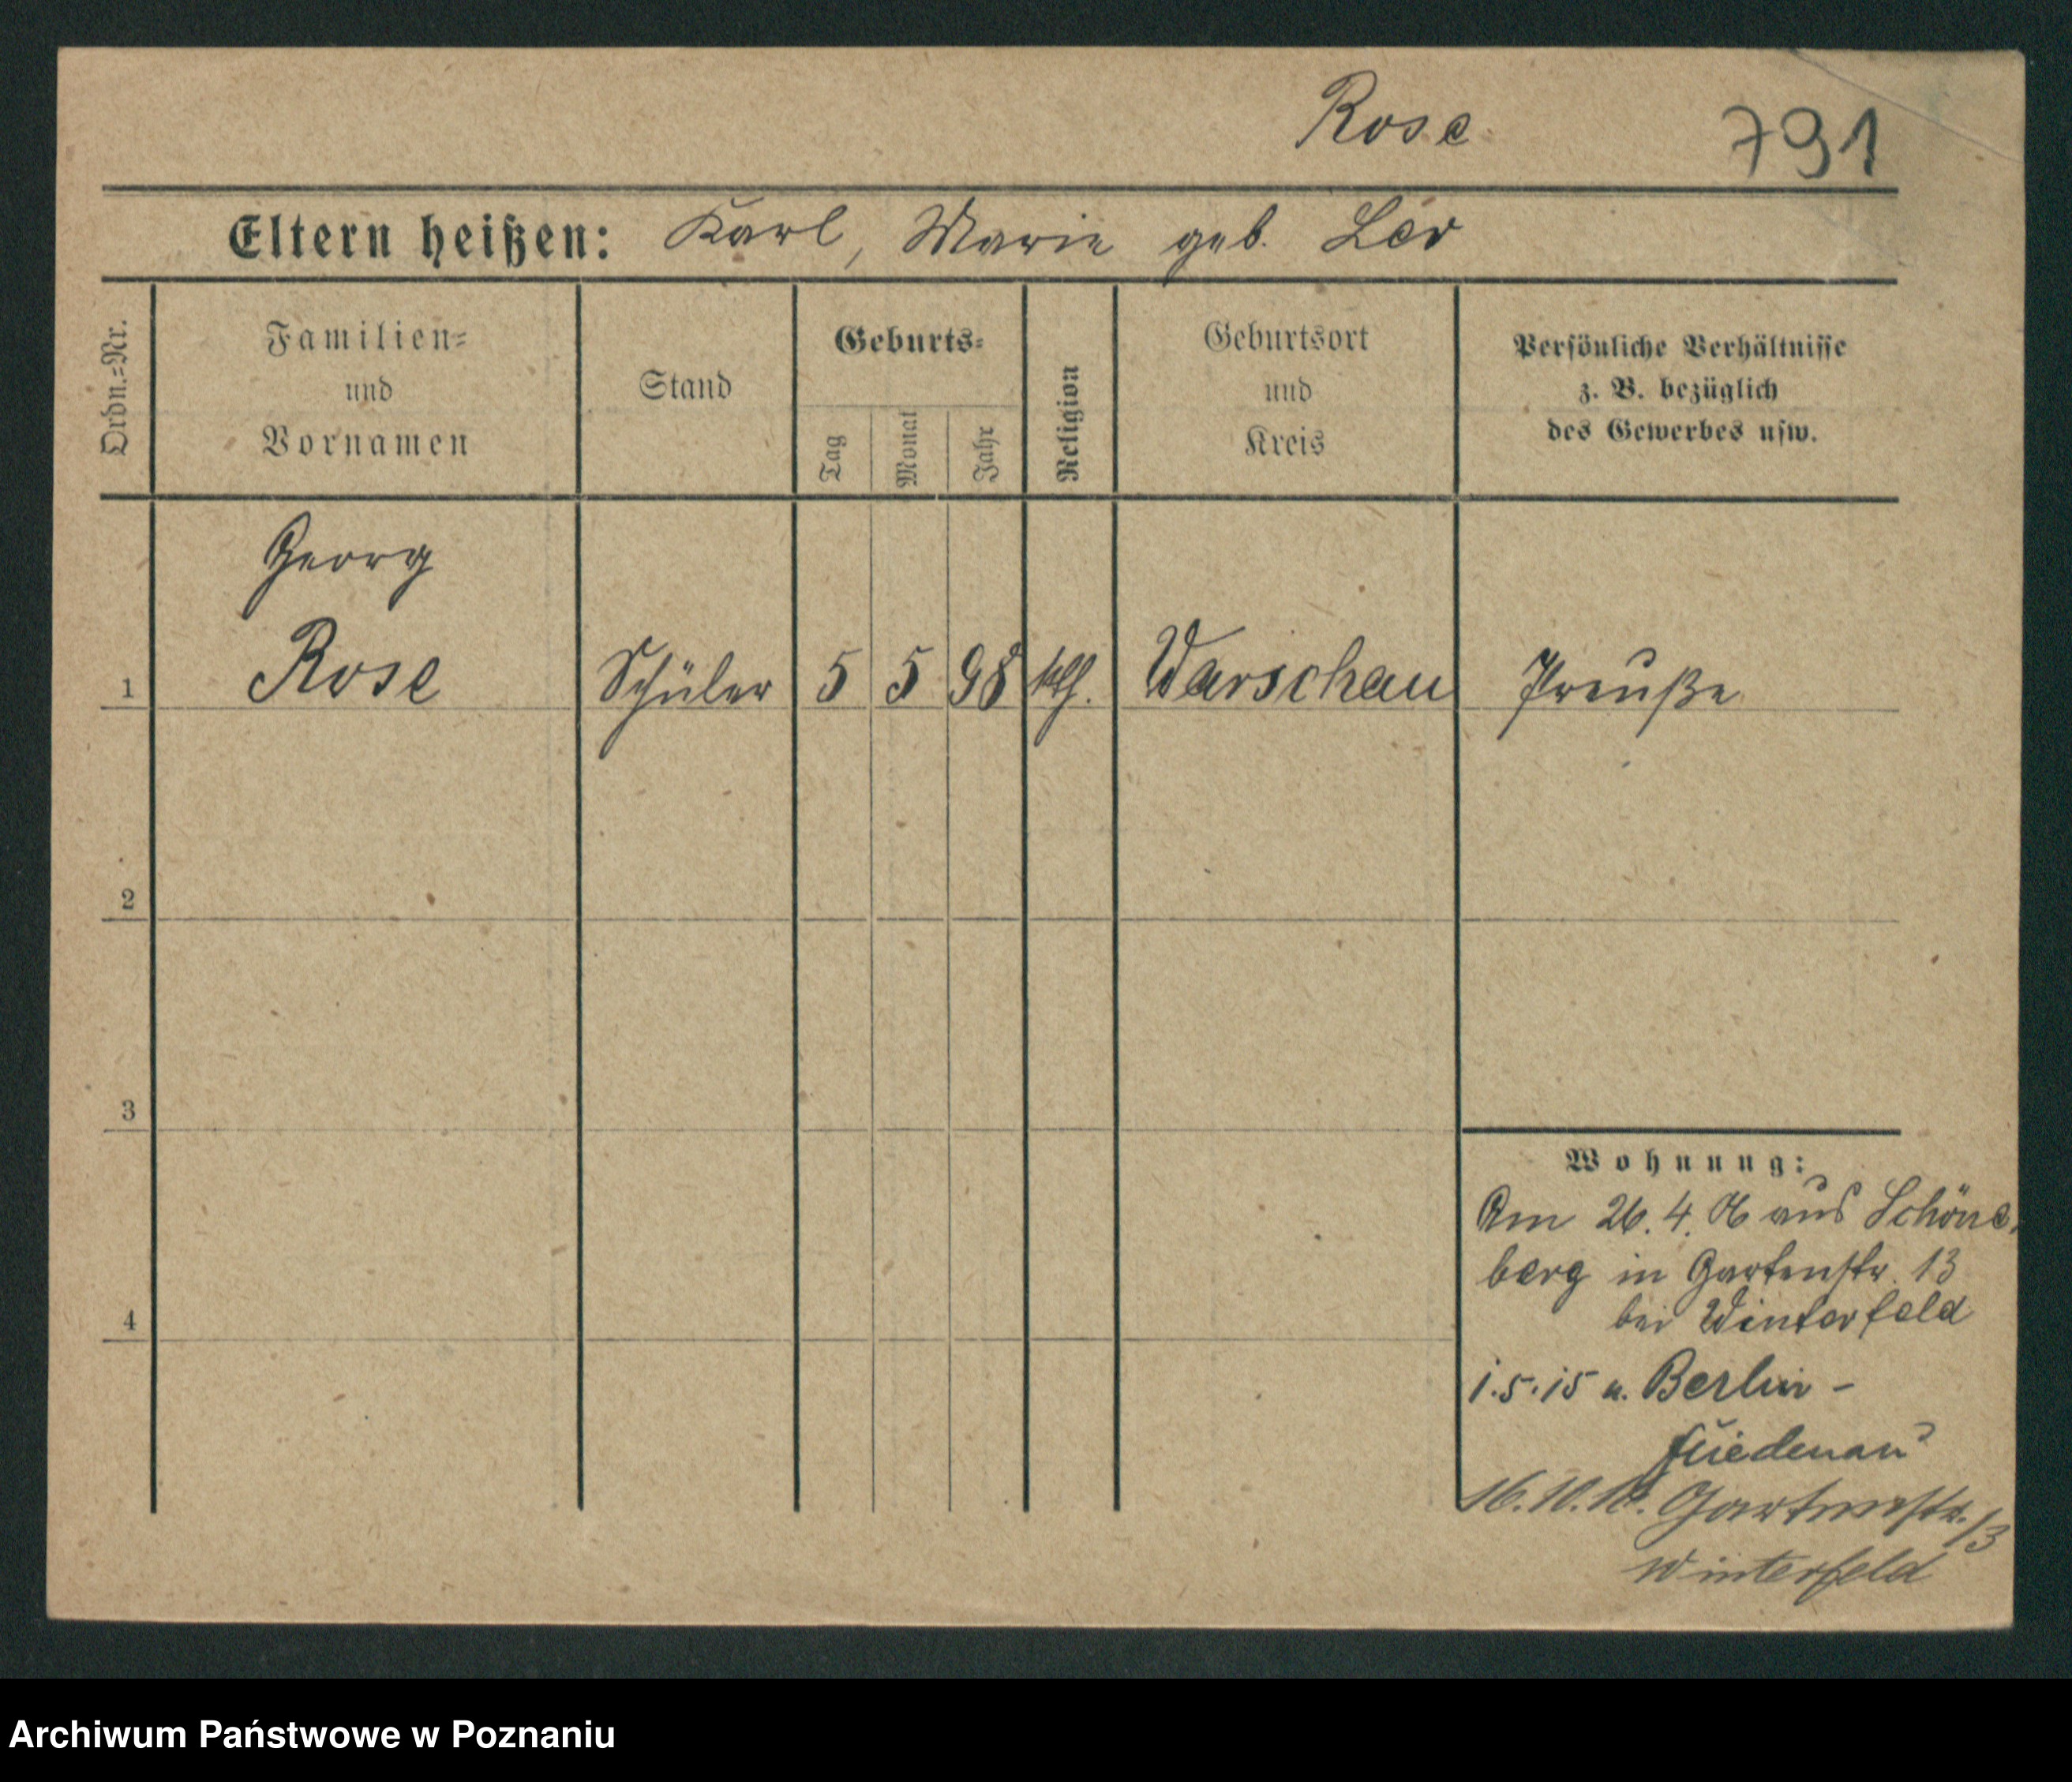 Rose
791
Eltern heißen: Karl, Marie geb.
Ordn.=Nr.
Familien=
und
Vornamen
Stand
Geburts=
Tag
Monat
Jahr
Religion
Geburtsort
und
Kreis
Persönliche Verhältnisse
z. B. bezüglich
des Gewerbes usw.
Georg
1 Rose Schüler 5 5 98 kth. Warschau Preuße
2
3
4
Wohnung:
Am 26. 4. 06 aus Schöne-
berg in Gartenstr. 13
bei Winterfeld
1.5.15 a. Berlin-
Friedenau
16.10. Gartenstr. 13
Winterfeld
Archiwum Państwowe w Poznaniu